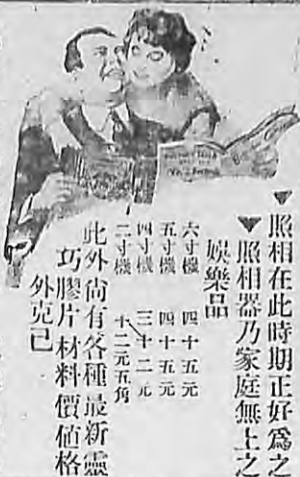 ▼照相在此時期正好爲之
▼照相器乃家庭無上之
娛樂品
六寸機 四十五元
五寸機 四十五元
四寸機 三十二元
二寸機 十二元五角
此外尙有各種最新靈
巧膠片材料價值格
外克己